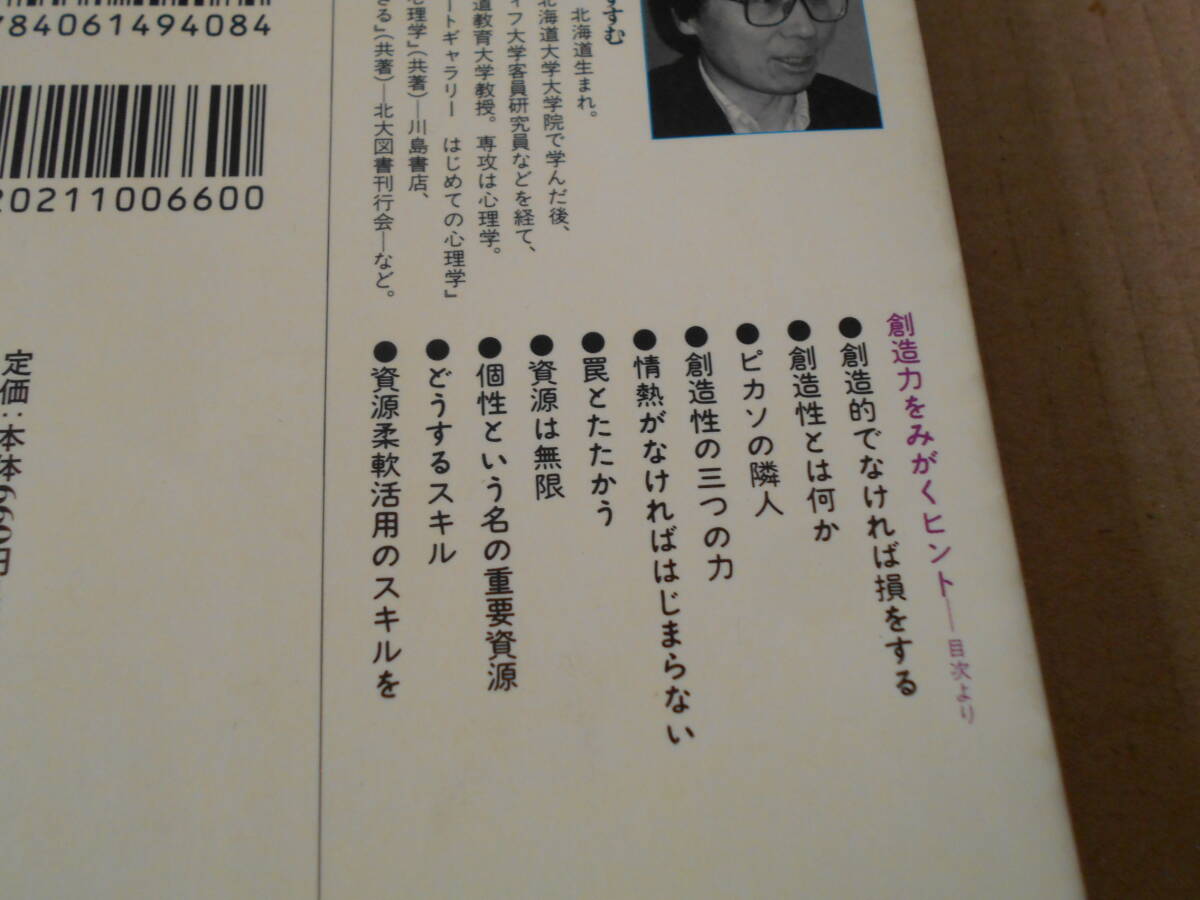 創造力をみがくヒント──目次より
●創造的でなければ損をする
●創造性とは何か
●ピカソの隣人
●創造性の三つの力
●情熱がなければはじまらない
●罠とたたかう
●資源は無限
●個性という名の重要資源
●どうするスキル
●資源柔軟活用のスキルを
すすむ
北海道生まれ。
北海道大学大学院で学んだ後、
ィフ大学客員研究員などを経て、
道教育大学教授。専攻は心理学。
ートギャラリー はじめての心理学』
心理学』(共著)─川島書店、
きる』(共著)─北大図書刊行会─など。
784061494084
20211006600
定価:本体660円